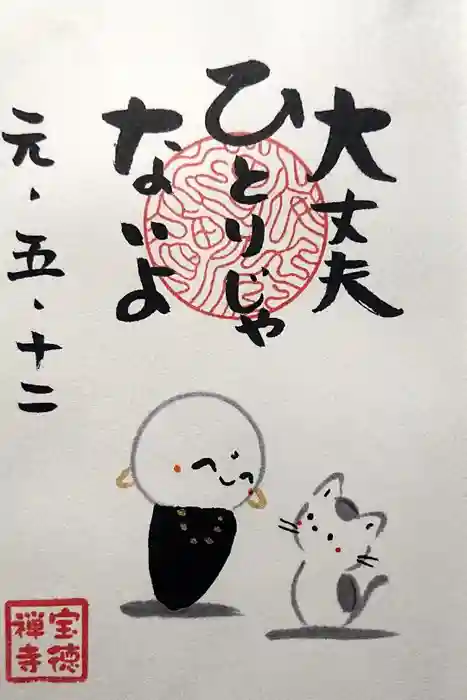 大丈夫
ひとりじゃ
ないよ
元・五・十二
宝徳
禅寺